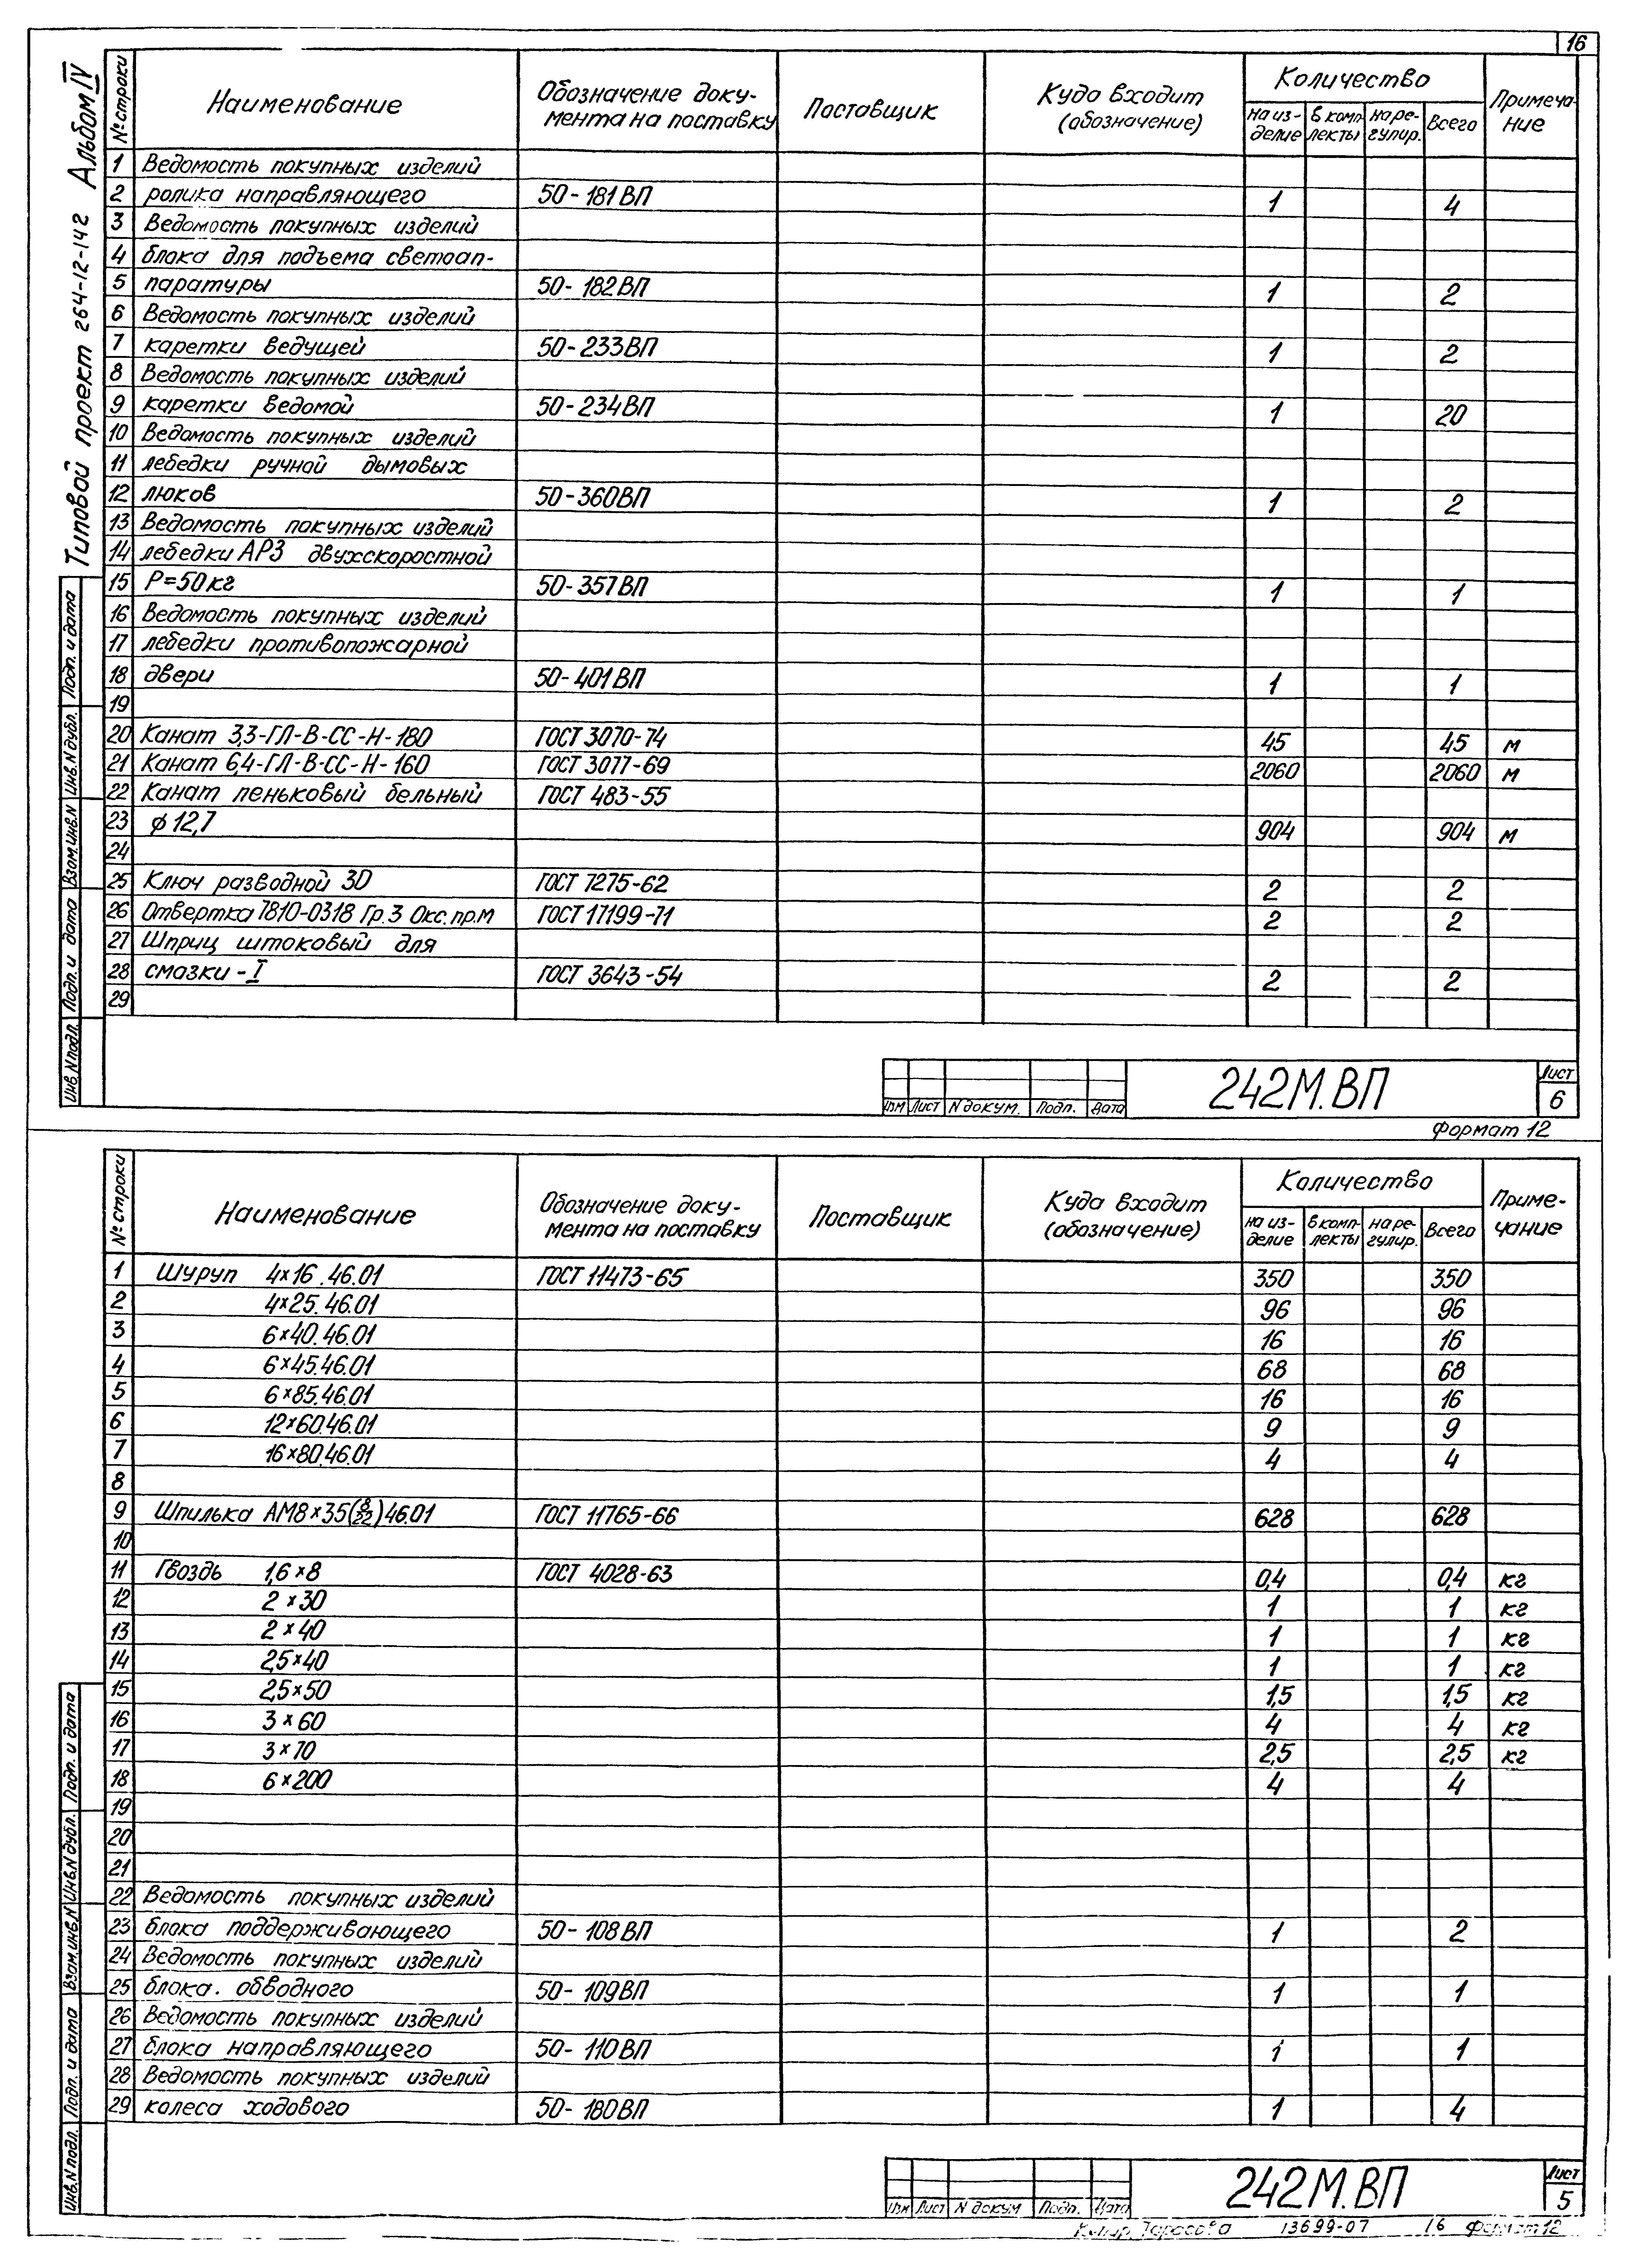 16
Типовой проект 264-12-142 Альбом IV
№ строки Наименование Обозначение доку-мента на поставку Поставщик Куда входит (обозначение) Количество на из-делие в комп-лекты на ре-гулир. Всего Примеча-ние
1 Ведомость покупных изделий
2 ролика направляющего 50-181ВП 1 4
3 Ведомость покупных изделий
4 блока для подъема светоап-
5 паратуры 50-182ВП 1 2
6 Ведомость покупных изделий
7 каретки ведущей 50-233ВП 1 2
8 Ведомость покупных изделий
9 каретки ведомой 50-234ВП 1 20
10 Ведомость покупных изделий
11 лебедки ручной дымовых
12 люков 50-360ВП 1 2
13 Ведомость покупных изделий
14 лебедки АРЗ двухскоростной
15 Р=50кг 50-357ВП 1 1
16 Ведомость покупных изделий
17 лебедки противопожарной
18 двери 50-401ВП 1 1
19
20 Канат 3,3-ГЛ-В-СС-Н-180 ГОСТ 3070-74 45 45 м
21 Канат 6,4-ГЛ-В-СС-Н-160 ГОСТ 3077-69 2060 2060 м
22 Канат пеньковый бельный ГОСТ 483-55
23 ϕ12,7 904 904 м
24
25 Ключ разводной 30 ГОСТ 7275-62 2 2
26 Отвертка 7810-0318 Гр.3 Окс.пр.М ГОСТ 17199-71 2 2
27 Шприц штоковый для
28 смазки-I ГОСТ 3643-54 2 2
29
Инв.N подл. Подп. и дата Взам.инв.N Инв.N дубл. Подп. и дата
Изм Лист N докум. Подп. Дата 242М.ВП Лист 6
Формат 12
№ строки Наименование Обозначение доку-мента на поставку Поставщик Куда входит (обозначение) Количество на из-делие в комп-лекты на ре-гулир. Всего Приме-чание
1 Шуруп 4×16.46.01 ГОСТ 11473-65 350 350
2 4×25.46.01 96 96
3 6×40.46.01 16 16
4 6×45.46.01 68 68
5 6×85.46.01 16 16
6 12×60.46.01 9 9
7 16×80.46.01 4 4
8
9 Шпилька АМ8×35(8/22)46.01 ГОСТ 11765-66 628 628
10
11 Гвоздь 1,6×8 ГОСТ 4028-63 0,4 0,4 кг
12 2×30 1 1 кг
13 2×40 1 1 кг
14 2,5×40 1 1 кг
15 2,5×50 1,5 1,5 кг
16 3×60 4 4 кг
17 3×70 2,5 2,5 кг
18 6×200 4 4
19
20
21
22 Ведомость покупных изделий
23 блока поддерживающего 50-108ВП 1 2
24 Ведомость покупных изделий
25 блока. обводного 50-109ВП 1 1
26 Ведомость покупных изделий
27 блока направляющего 50-110ВП 1 1
28 Ведомость покупных изделий
29 колеса ходового 50-180ВП 1 4
Инв.N подл. Подп. и дата Взам.инв.N Инв.N дубл. Подп. и дата
Изм Лист N докум Подп. Дата 242М.ВП Лист 5
Тарасова 13699-07 16 Формат 12